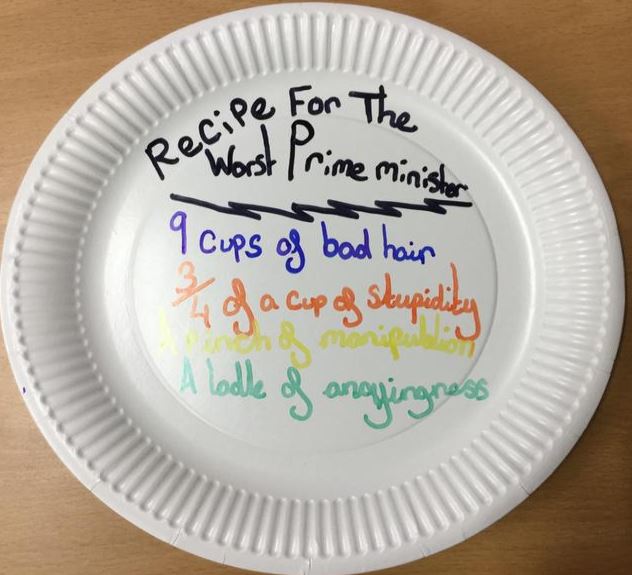 Recipe For The
Worst Prime minister
9 cups of bad hair
3/4 of a cup of stupidity
A pinch of manipulation
A ladle of anoyingness